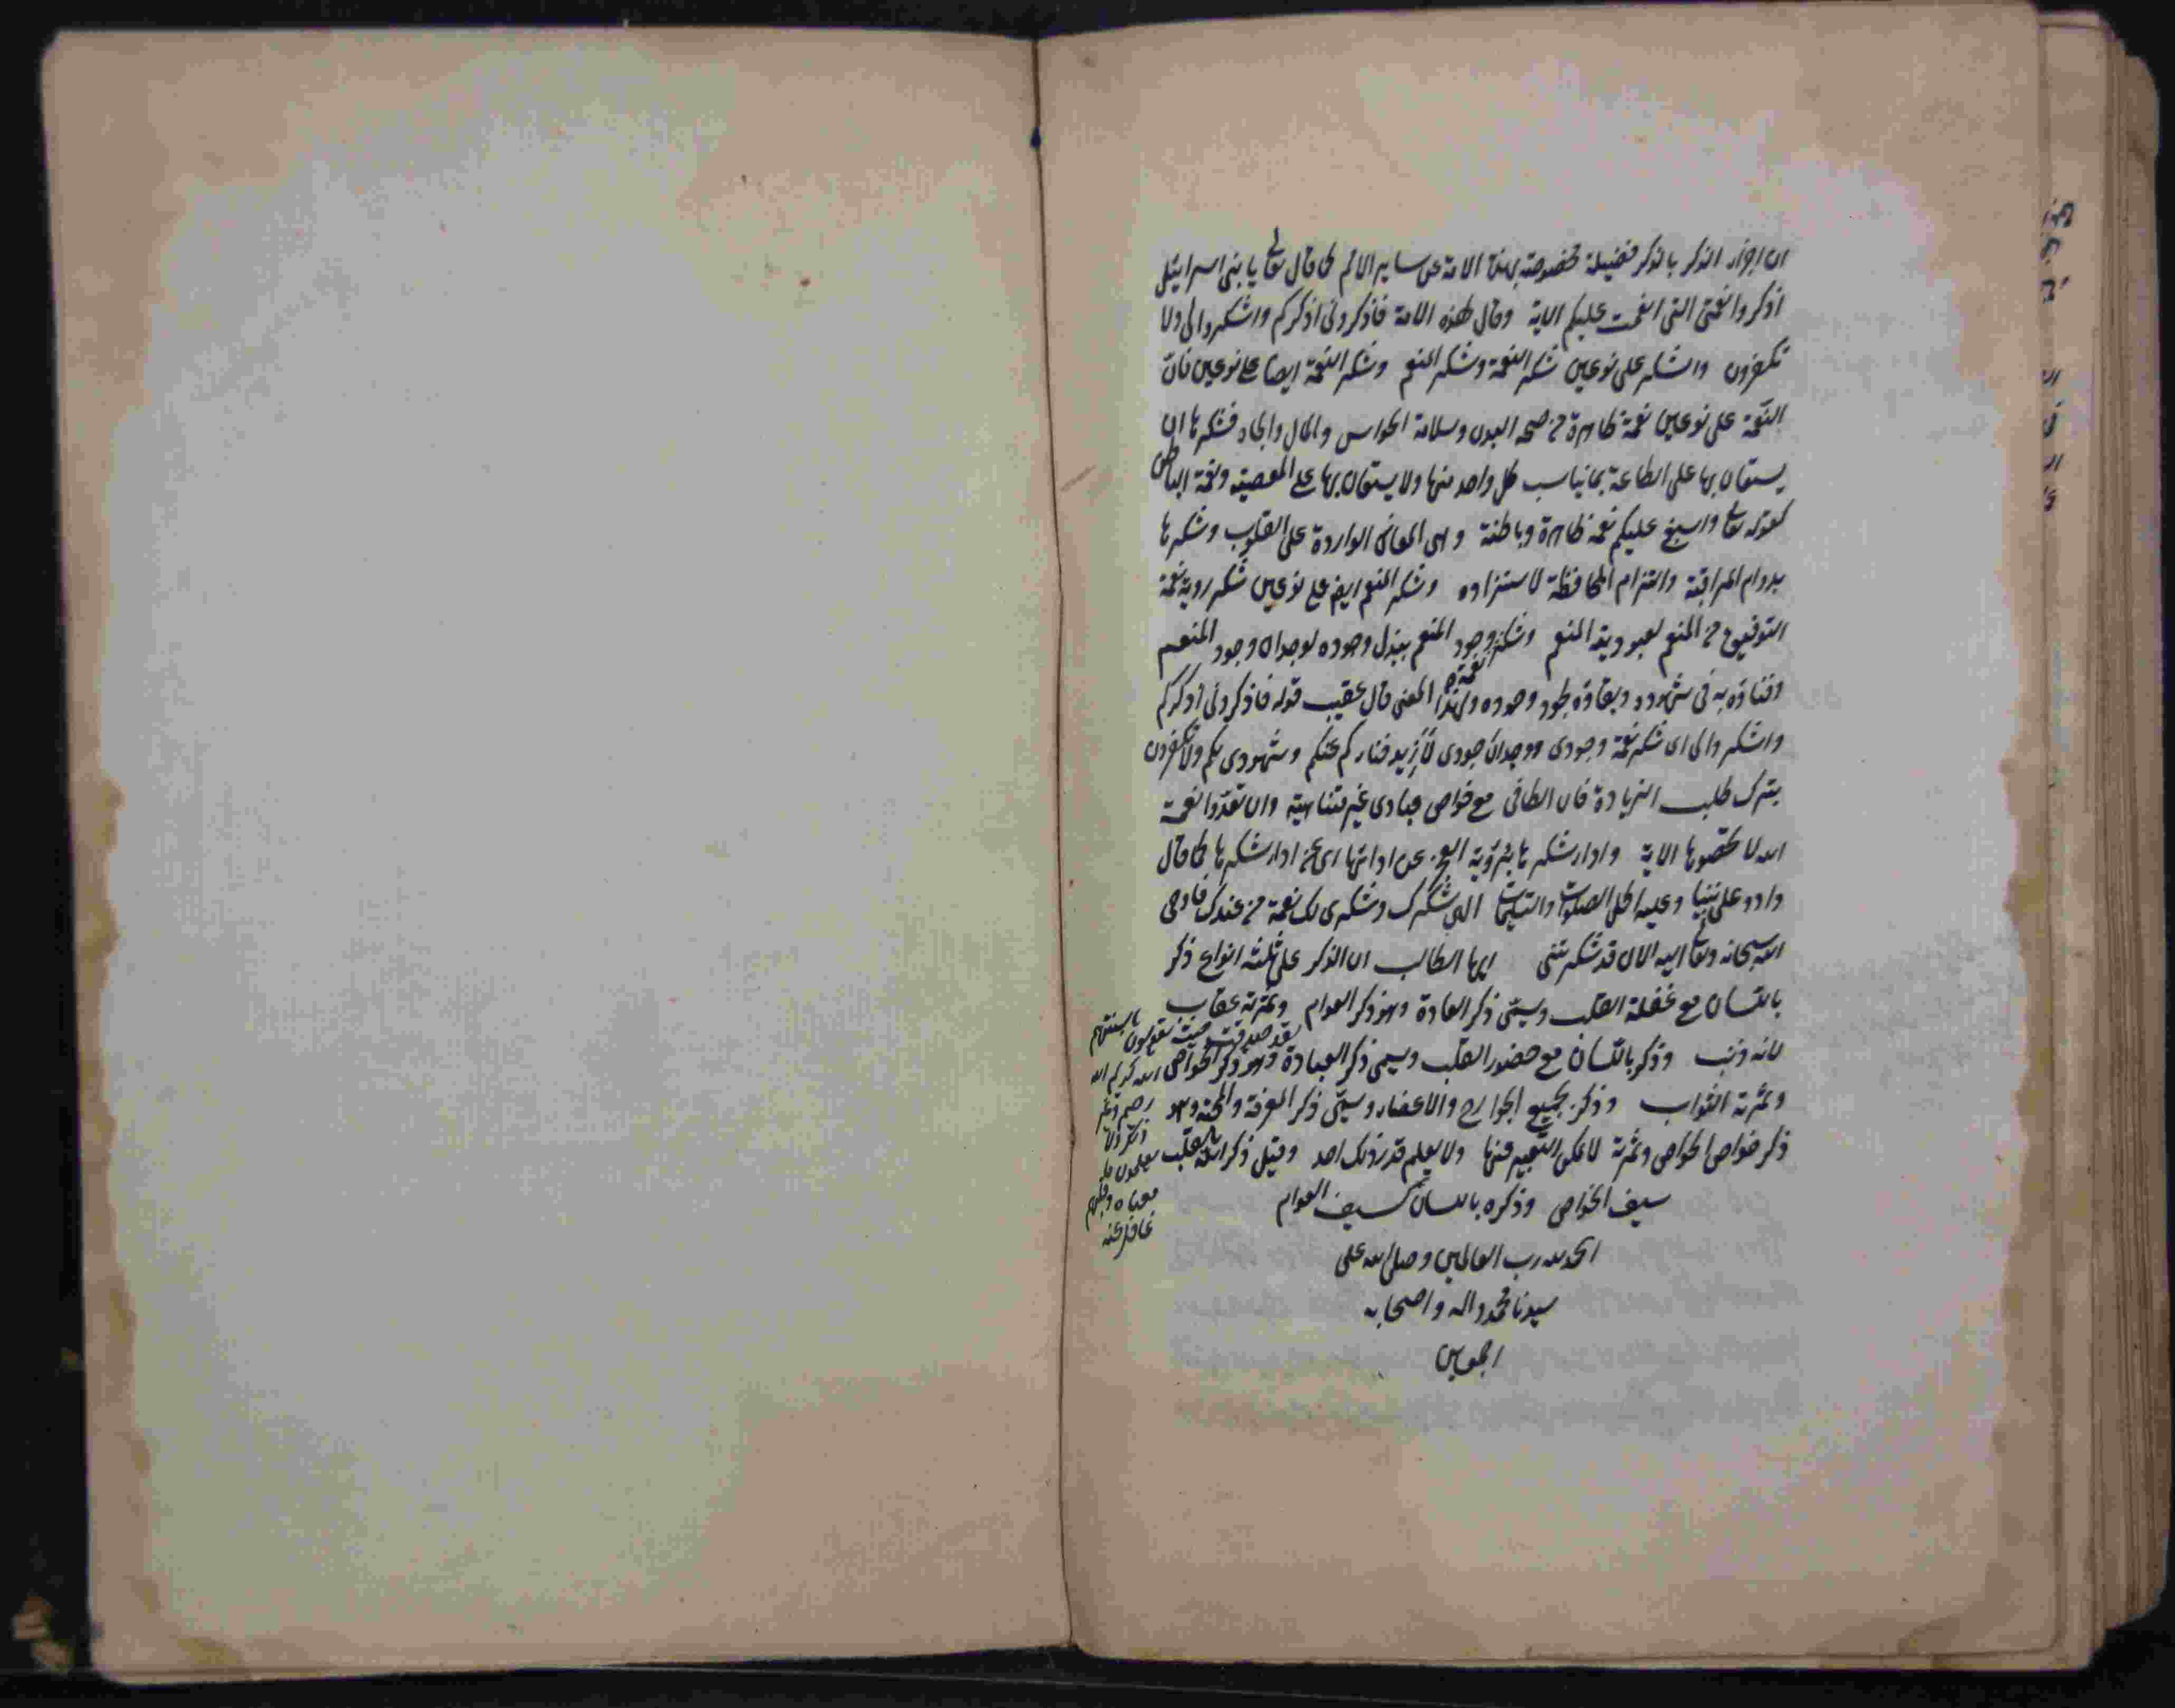 ان اجزاء الذكر بالذكر فضيلة مخصوصة بهذه الامة عن ساير الامم كما قال تعالى يا بنى اسرائيل
اذكروا نعمتى التى انعمت عليكم الاية وقال لهذه الامة فاذكرونى اذكركم واشكروا لى ولا
تكفرون والشكر على نوعين شكر النعمة وشكر المنعم وشكر النعمة ايضا على نوعين فانّ
النعمة على نوعين نعمة ظاهرة من صحة البدن وسلامة الحواس والمال والجاه فشكرها ان
يستعان بها على الطاعة بما يناسب كل واحد منها ولا يستعان بها على المعصية ونعمة الباطن
كقوله تعالى واسبغ عليكم نعمه ظاهرة وباطنة وهى المعانى الواردة على القلوب وشكرها
بدوام المراقبة والتزام المحافظة لاستزاده وشكر المنعم ايضا على نوعين شكر روية نعمة
التوفيق من المنعم لعبودية المنعم وشكر نعمة وجود المنعم ببذل وجوده لوجدان وجود المنعم
وفناؤه به فى شهوده وبقاؤه بجود وجوده ولهذا المعنى قال عقيب قوله فاذكرونى اذكركم
واشكروا لى اى شكر نعمة وجودى ووجدان جودى لأزيد فناركم عنكم وشهودى بكم ولا تكفرون
بترك طلب الزيادة فان الطافى مع خواص عبادى غير متناهية وان تعدّوا نعمة
الله لا تحصوها الاية واداء شكرها برؤية العجز عن ادائها اى عن اداء شكرها كما قال
داود على نبينا وعليه اكمل الصلوات والتسليمات الهى شكرك وشكرى لك نعمة من عندك فاوحى
الله سبحانه وتعالى اليه الان قد شكرتنى ايها الطالب ان الذكر على ثلثة انواع ذكر
باللسان مع غفلة القلب ويسمّى ذكر العادة وهو ذكر العوام وثمرته عقاب
لانه ذنب وذكر باللسان مع حضور القلب ويسمى ذكر العبادة وهو ذكر الخواص
وثمرته الثواب وذكر بجميع الجوارح والاعضاء ويسمّى ذكر المعرفة والمحبة وهو
ذكر خواص الخواص وثمرته لا يمكن التعبير عنها ولا يعلم قدر ذلك احد وقيل ذكر الله بالقلب
سيف الخواص وذكره باللسان سيف العوام
الحمد لله رب العالمين وصلى الله على
سيدنا محمد واله واصحابه
اجمعين
حيث يقولون بالسنتهم
الله كريم الله
رحيم وغير
ذلك ولا
يعلمون
معناه وقلبهم
غافل عنه